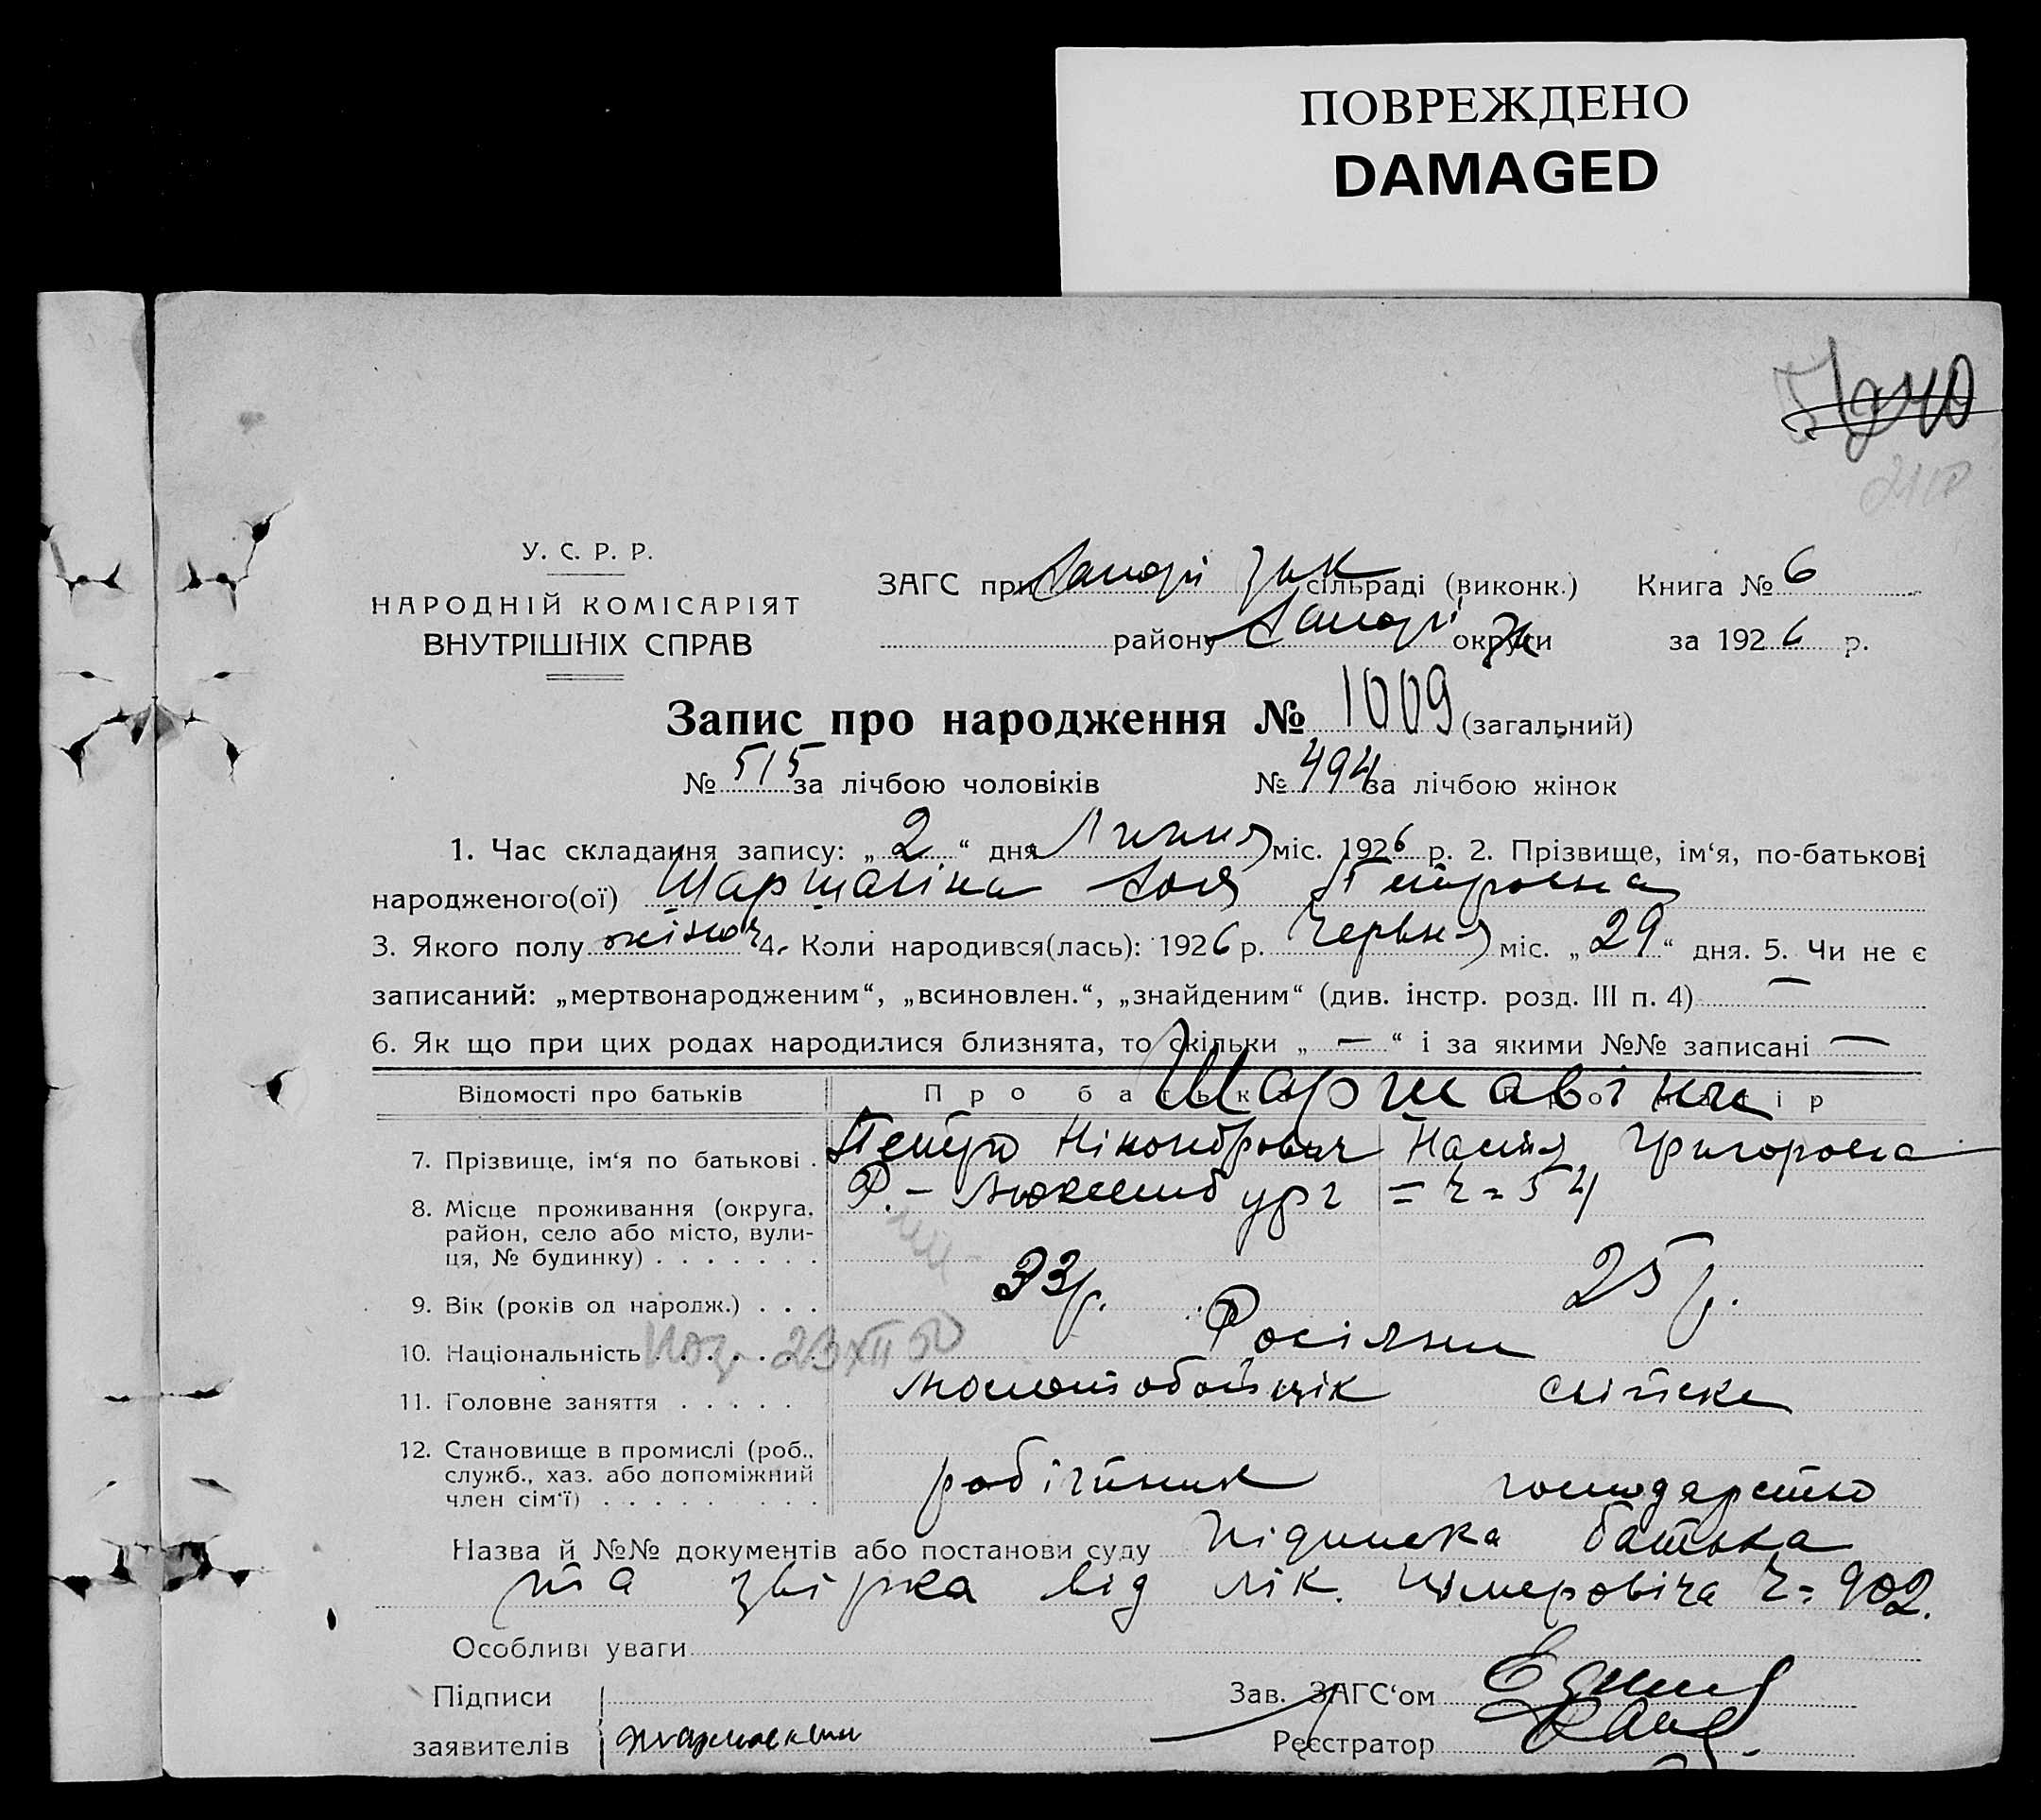 ПОВРЕЖДЕНО
DAMAGED
У. С. Р. Р.
НАРОДНІЙ КОМІСАРІЯТ
ВНУТРІШНІХ СПРАВ
ЗАГС при сільраді (виконк.) Книга № 6
району округи за 1926 р.
Запис про народження № 1009 (загальний)
№ 515 за лічбою чоловіків № 494 за лічбою жінок
1. Час складання запису: „2“ дня Липня міс. 1926 р. 2. Прізвище, ім‘я, по-батькові
народженого(ої) Шаршавіна Зоя Петровна
3. Якого полу жіноч 4. Коли народився(лась): 1926 р. Червня міс. „29“ дня. 5. Чи не є
записаний: „мертвонародженим“, „всиновлен.“, „знайденим“ (див. інстр. розд. III п. 4) —
6. Як що при цих родах народилися близнята, то скільки „ — “ і за якими №№ записані —
Відомості про батьків Про батька Про матір
Шаршавіни
7. Прізвище, ім‘я по батькові . Петро Настя Григоровна
8. Місце проживання (округа, район, село або місто, вулиця, № будинку) . . . . . . . Р. - Люксембург = ч = 54
9. Вік (років од народж.) . . . 33 р. 25 р.
10. Національність . . . . . . Росіяни
23 XII 50
11. Головне заняття . . . . . молотобойщік хатнє
12. Становище в промислі (роб., служб., хаз. або допоміжний член сім‘ї) . . . . . . . . . робітник господарство
Назва й №№ документів або постанови суду підписка батька
та від лік. ч = 902.
Особливі уваги
Підписи Зав. ЗАГС‘ом
заявителів Реєстратор